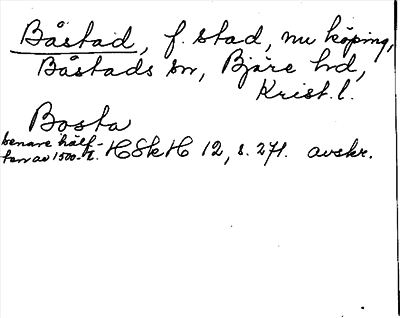 Båstad, f. stad, nu köping,
Båstads sn, Bjäre hd,
Krist. l.
Bosta
senare hälf-
ten av 1500-t. HSkH 12, s. 271. avskr.